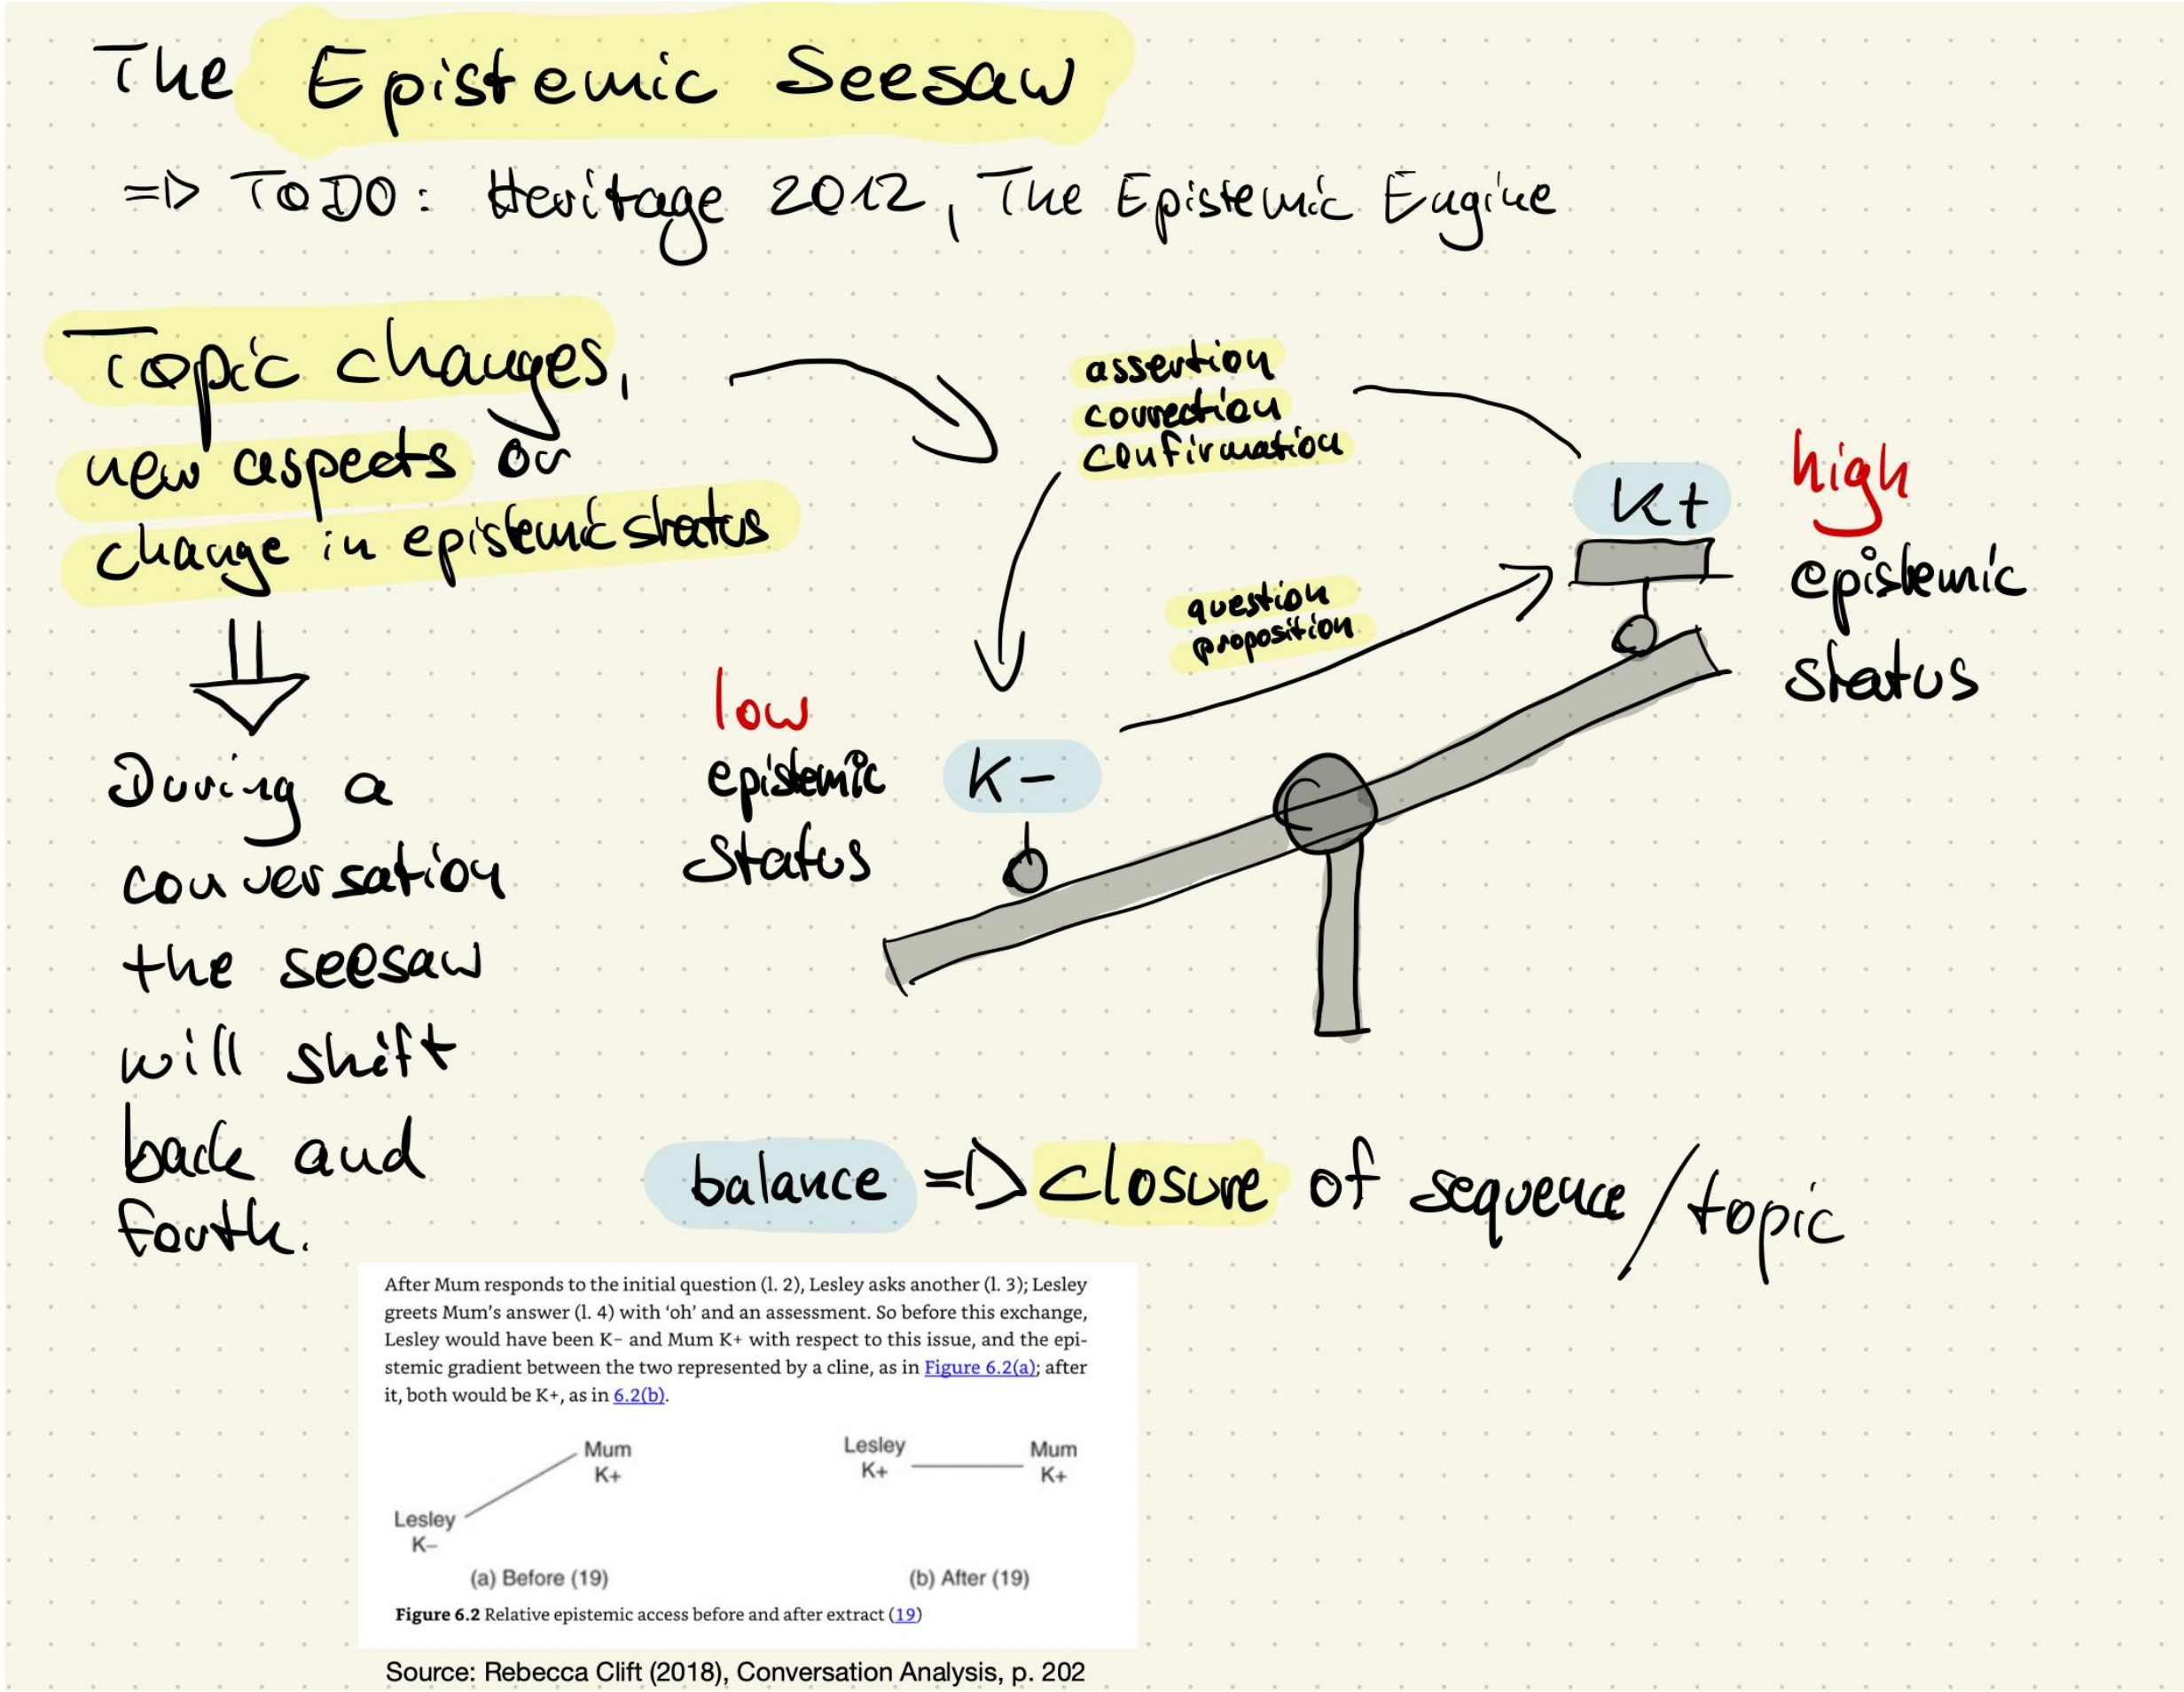 The Epistemic Seesaw
=> TODO: Heritage 2012, The Epistemic Engine
Topic changes,
new aspects or
change in epistemic status
During a
conversation
the seesaw
will shift
back and
fourth.
assertion
correction
confirmation
question
proposition
K+
high
epistemic
status
low
epistemic
status
K-
balance => closure of sequence/topic
After Mum responds to the initial question (l. 2), Lesley asks another (l. 3); Lesley
greets Mum's answer (l. 4) with ‘oh’ and an assessment. So before this exchange,
Lesley would have been K− and Mum K+ with respect to this issue, and the epi-
stemic gradient between the two represented by a cline, as in Figure 6.2(a); after
it, both would be K+, as in 6.2(b).
Mum
K+
Lesley
K−
(a) Before (19)
Lesley
K+
Mum
K+
(b) After (19)
Figure 6.2 Relative epistemic access before and after extract (19)
Source: Rebecca Clift (2018), Conversation Analysis, p. 202